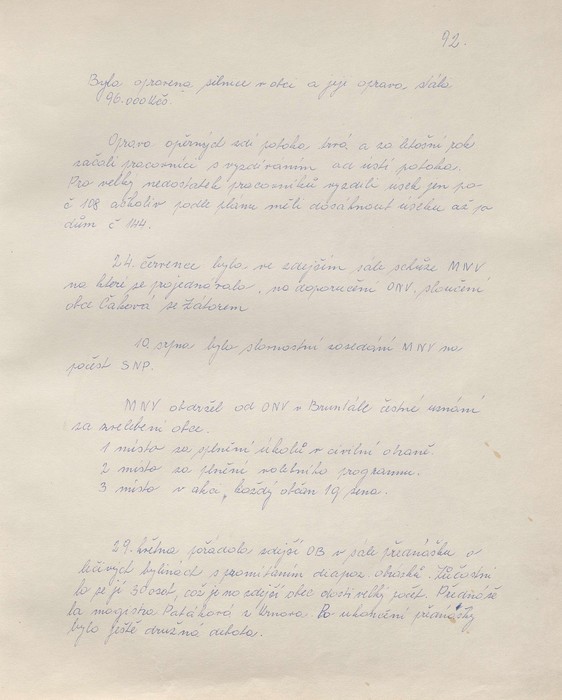 92.
Byla opravena silnice v obci a její oprava stála
96.000 Kčs.
Oprava opěrných zdí potoka trvá a za letošní rok
začali pracovníci s vyzdíváním od ústí potoka.
Pro velký nedostatek pracovníků vyzdili úsek jen po
č 108 ačkoliv podle plánu měli dosáhnout úseku až po
dům č 144.
24. července byla ve zdejším sále schůze MNV
na které se projednávalo, na doporučení ONV, sloučení
obce Čaková se Zátorem
10. srpna bylo slavnostní zasedání MNV na
počest SNP.
MNV obdržel od ONV v Bruntále čestné uznání
za zvelebení obce.
1 místo za splnění úkolů v civilní obraně.
2 místo za plnění volebního programu.
3 místo v akci, každý občan 1q sena.
29. května pořádala zdejší OB v sále přednášku o
léčivých bylinách s promítáním diapoz. obrázků. Zúčastni
lo se jí 50 osob, což je na zdejší obec dosti velký počet. Přednáše
la magistra Patáková z Krnova. Po ukončení přednášky
byla ještě družná debata.